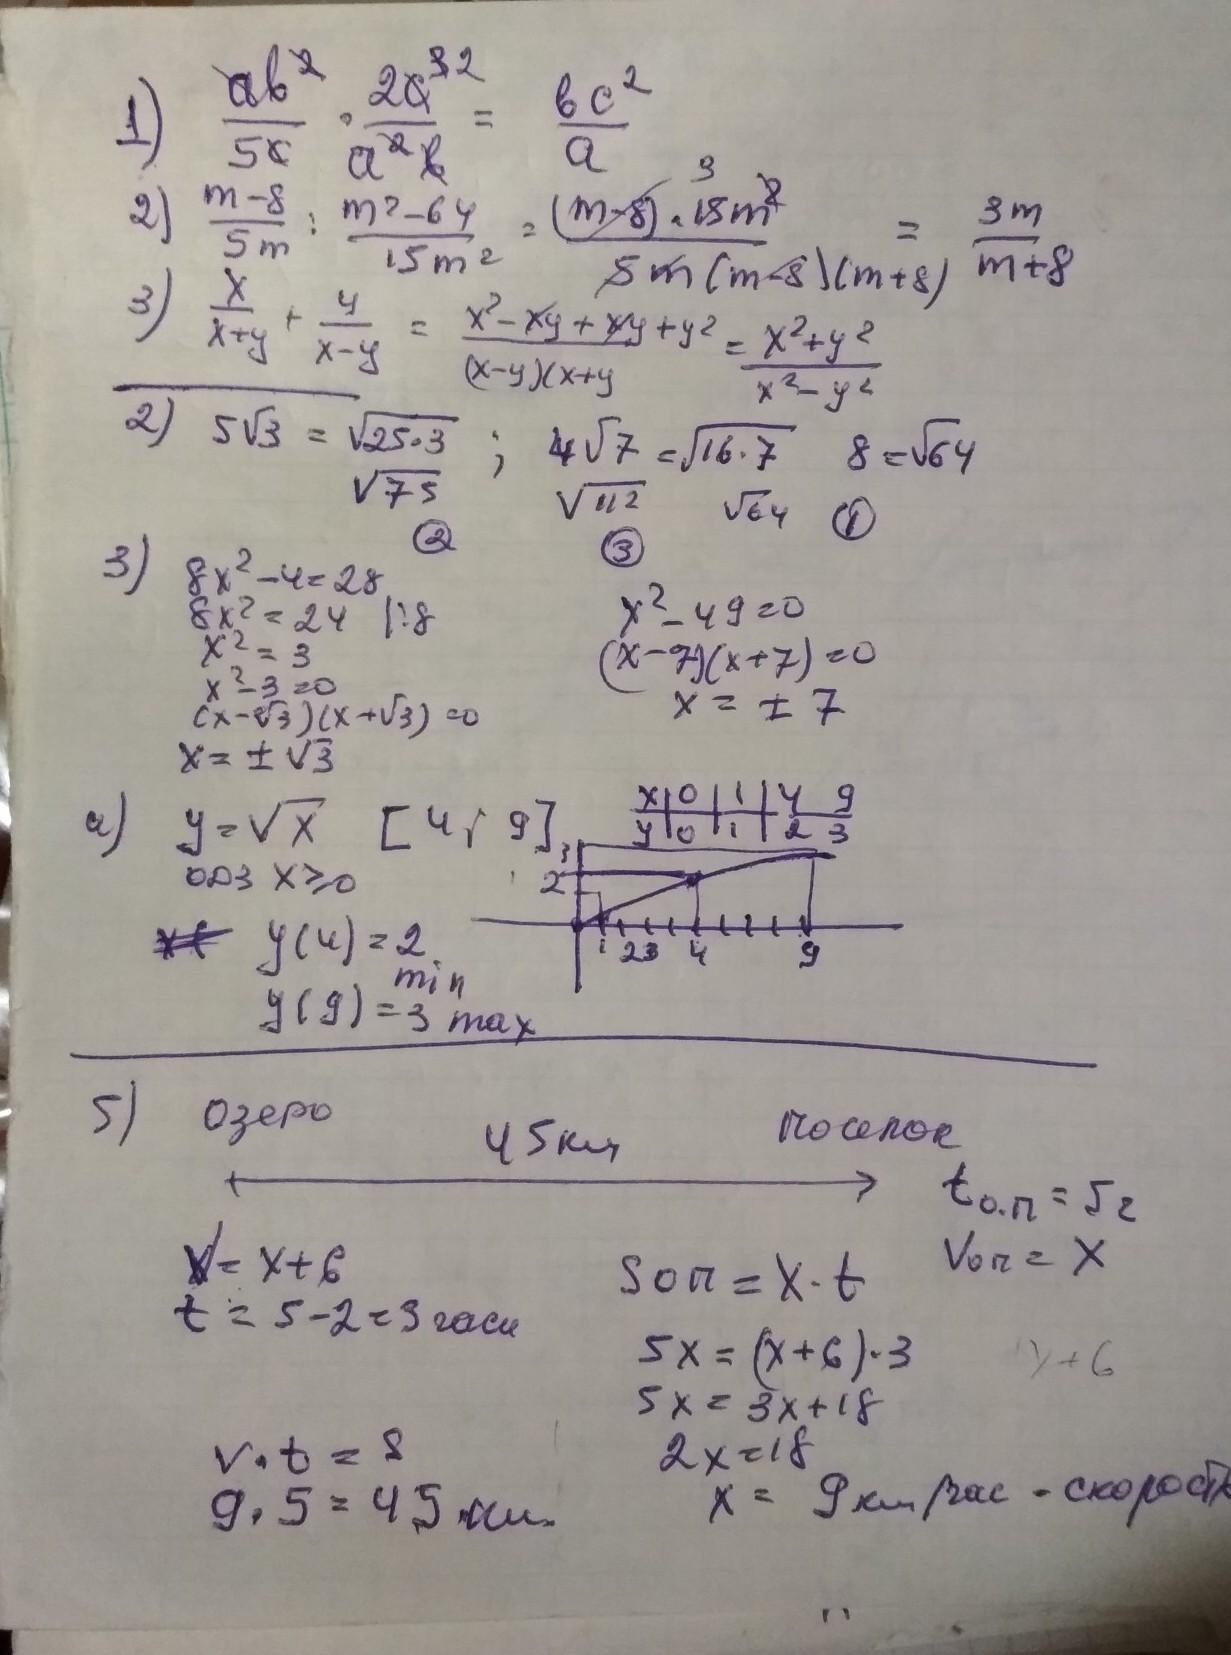 1) ab²/5c · 2c³²/a²b = bc²/a
2) m-8/5m : m²-64/15m² = (m-8)·15m² 3/5m(m-8)(m+8) = 3m/m+8
3) x/x+y + y/x-y = x²-xy+xy+y²/(x-y)(x+y = x²+y²/x²-y²
2) 5√3 = √25·3 ; 4√7 = √16·7 8=√64
√75 √112 √64 ①
② ③
3) 8x²-4=28
8x²=24 |:8
x²=3
x²-3=0
(x-√3)(x+√3)=0
x=±√3
x²-49=0
(x-7)(x+7)=0
x=±7
4) y=√x [4; 9]
ОДЗ x≥0
y(4)=2
min
y(9)=3 max
x 0 1 4 9
y 0 1 2 3
3
2
1 2 3 4 9
5) Озеро 45км поселок
tо.п=5г
Vоп=x
V=x+6
t=5-2=3 часа
Sоп=x·t
5x=(x+6)·3
5x=3x+18
2x=18
x= 9км/час - скорость
v·t=S
9·5=45 км.